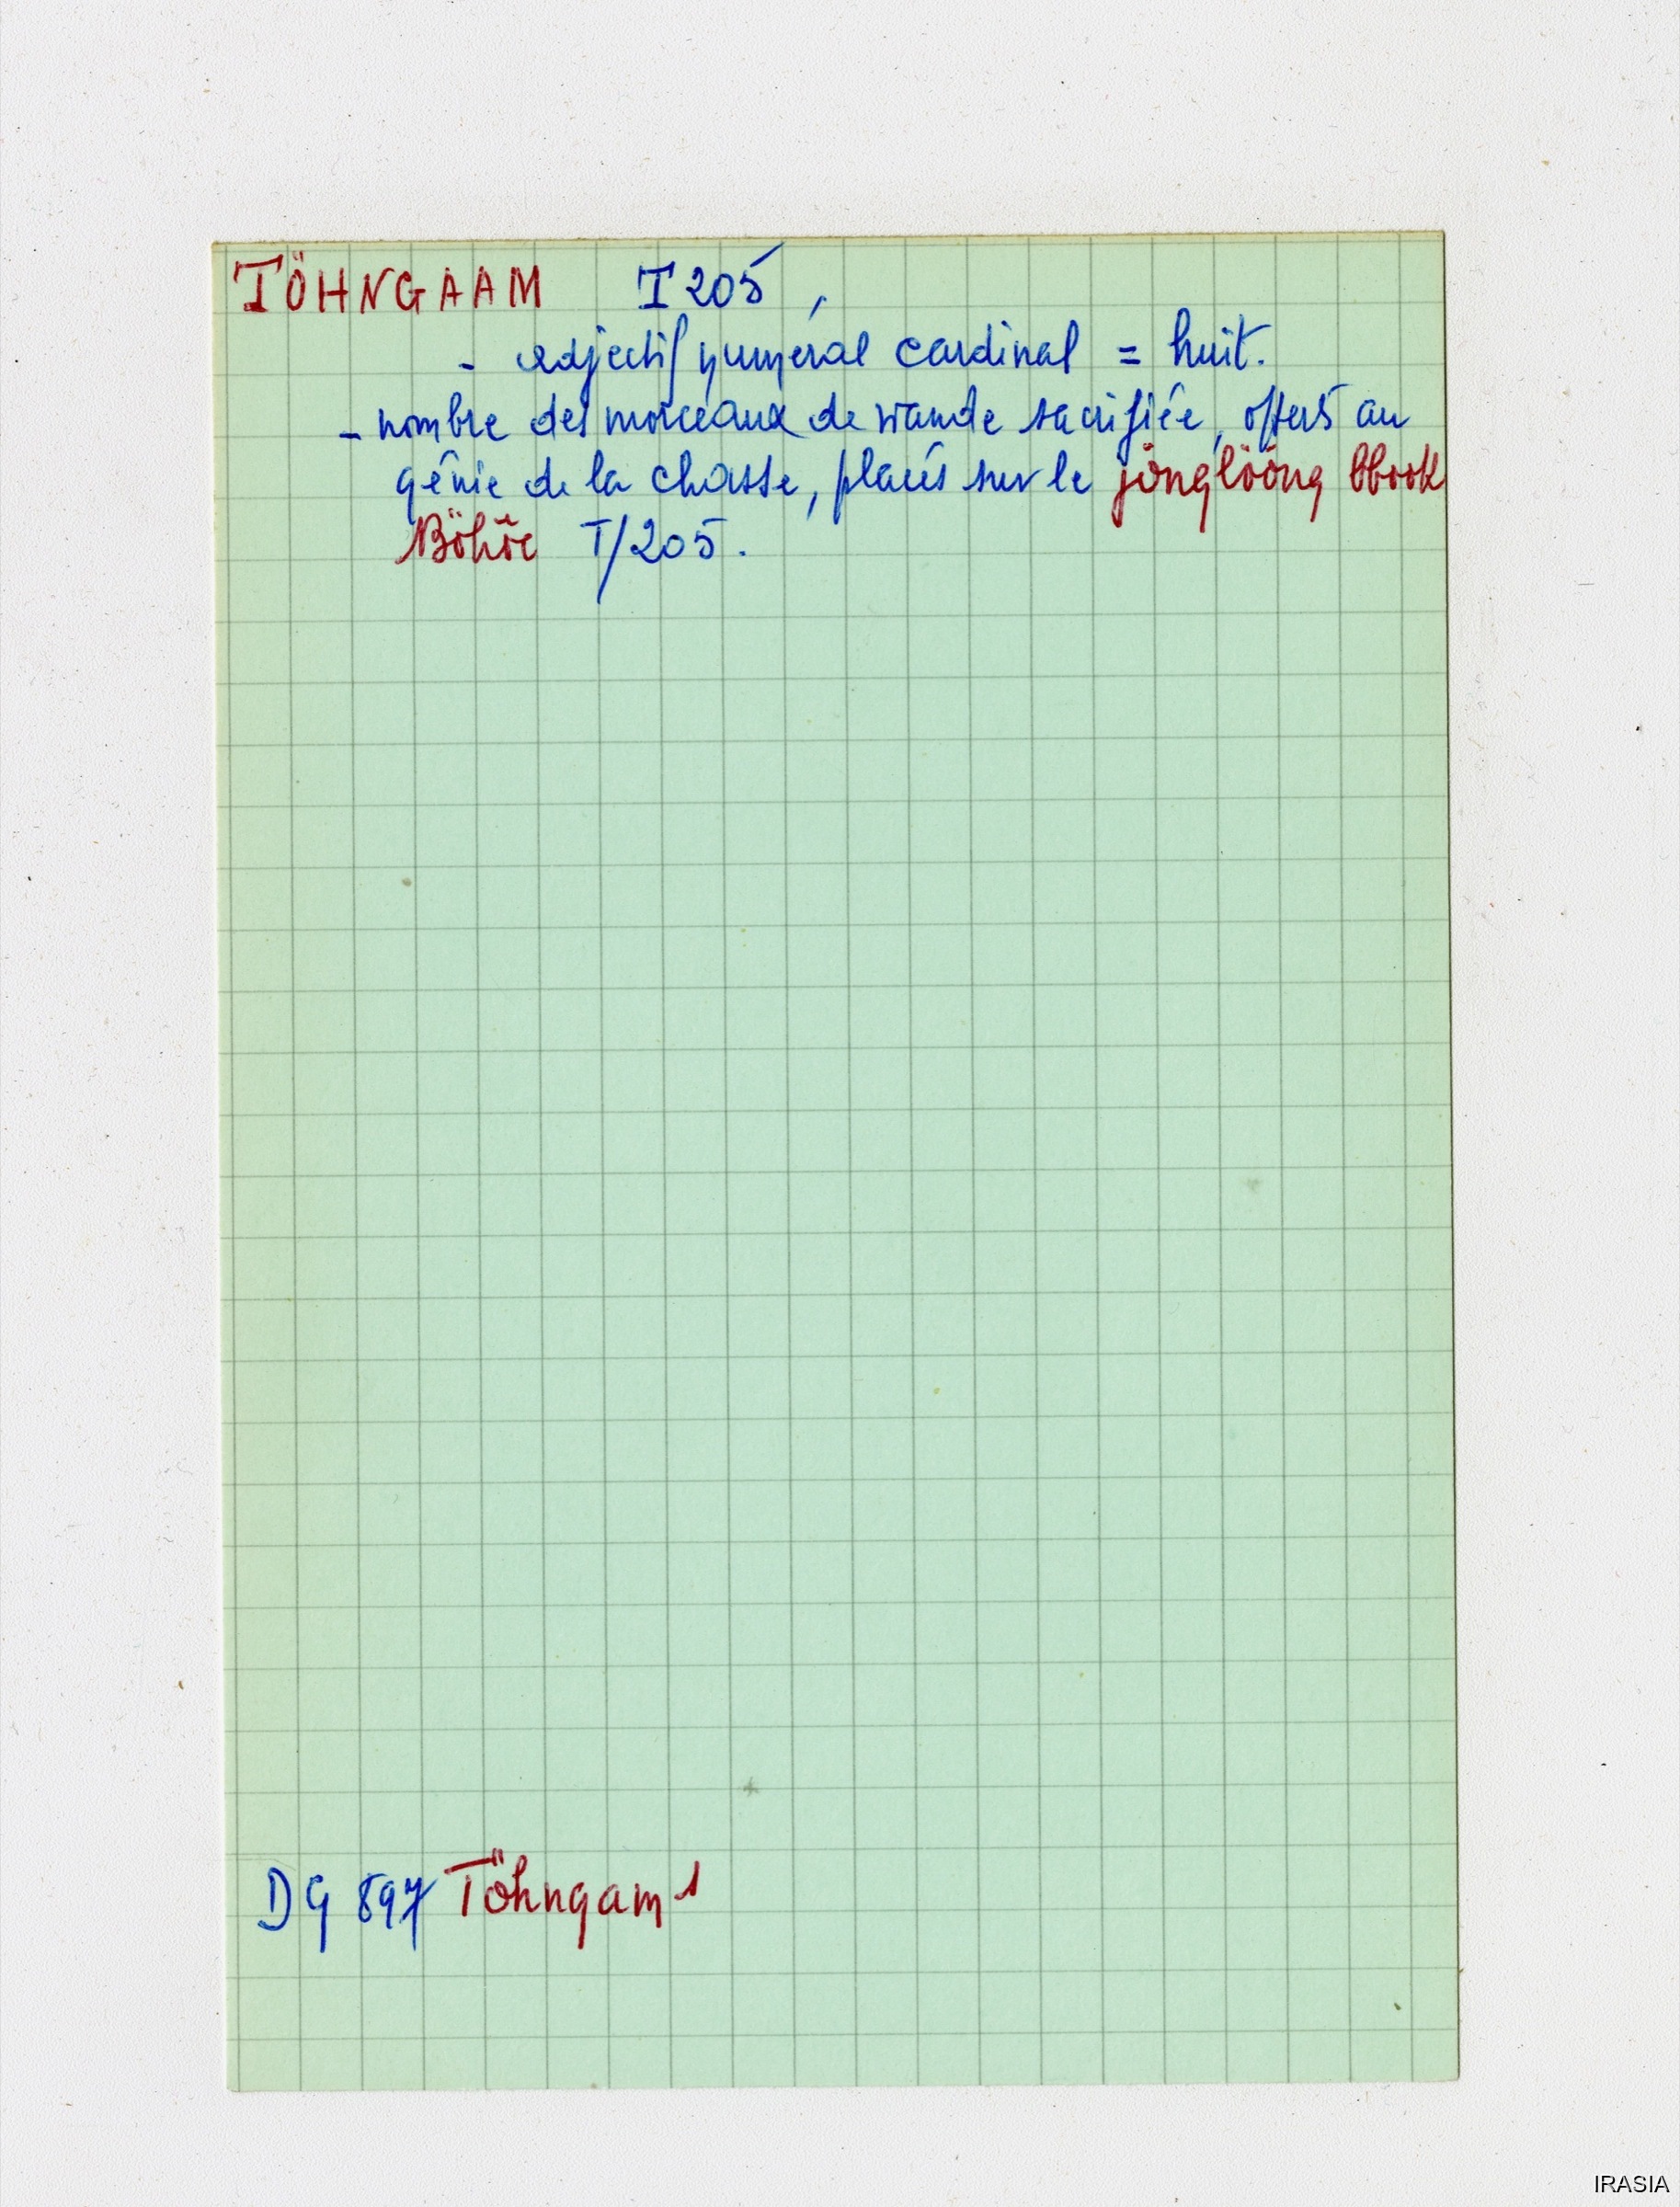 TÖHNGAAM T 205,
- adjectif numéral cardinal = huit.
- nombre des morceaux de viande sacrifiée, offerts au
génie de la chasse, placés sur le jönglööng bbook
Böhôe T/205.
DG 897 Töhngam 1
IRASIA